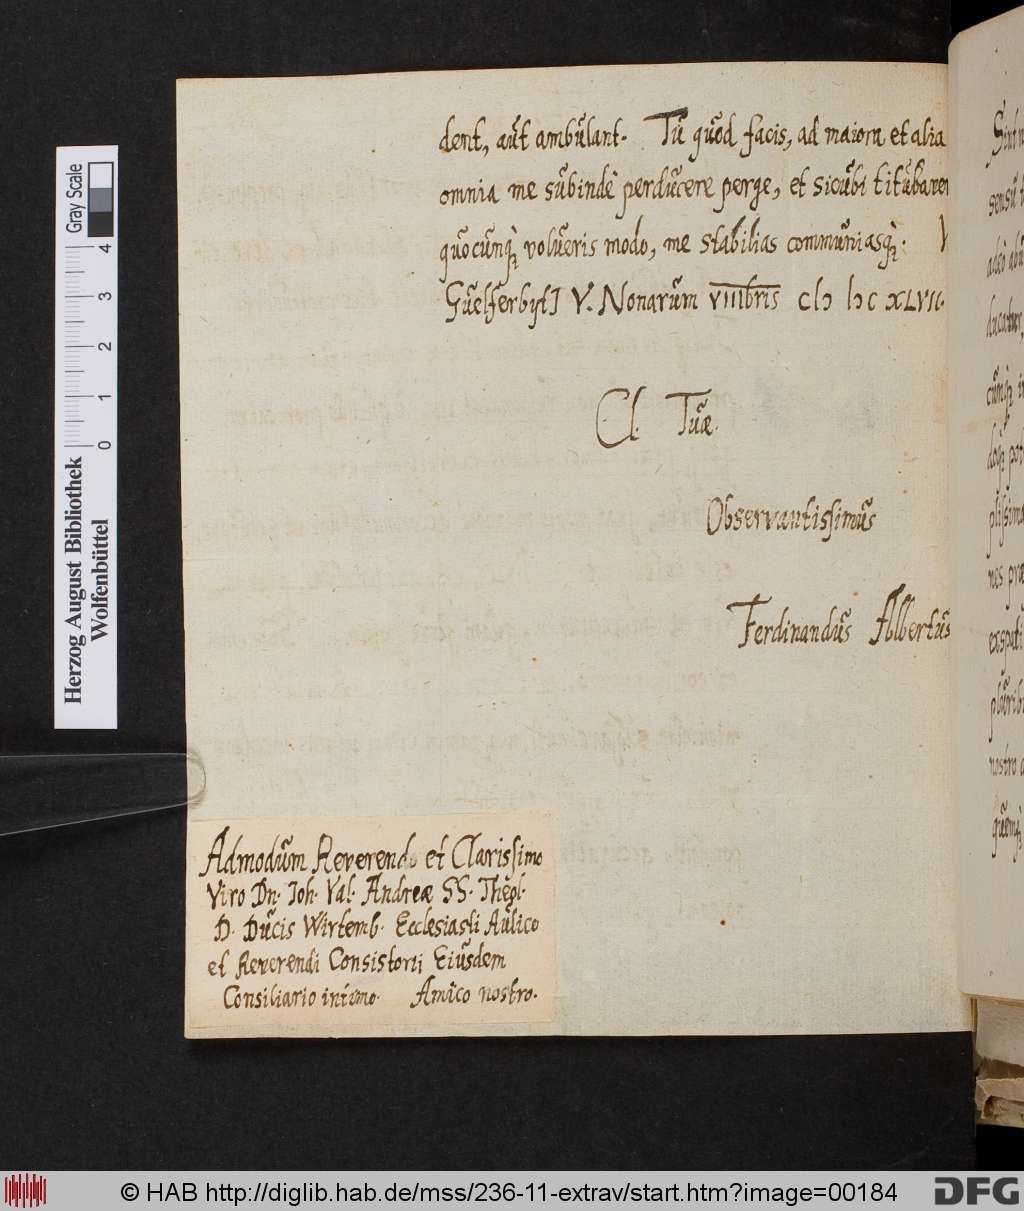 dent, aut ambulant. Tu quod facis, ad maiora et alia
omnia me subindè perducere perge, et sicubi titubaren
quocunq; volueris modo, me stabilias communiasq;. V
Guelferbyti V. Nonarum VIIIbris CIↃ IↃC XLVII.
Cl. Tuæ.
Observantissimus
Ferdinandus Albertus
Admodum Reverendo et Clarissimo
Viro Dn. Joh. Val. Andreæ SS. Theol.
D. Ducis Wirtemb. Ecclesiasti Aulico
et Reverendi Consistorii Eiusdem
Consiliario intimo. Amico nostro.
sensu
ducatur,
nostro
Herzog August Bibliothek
Wolfenbüttel
0 1 2 3 4
Gray Scale
© HAB http://diglib.hab.de/mss/236-11-extrav/start.htm?image=00184
DFG